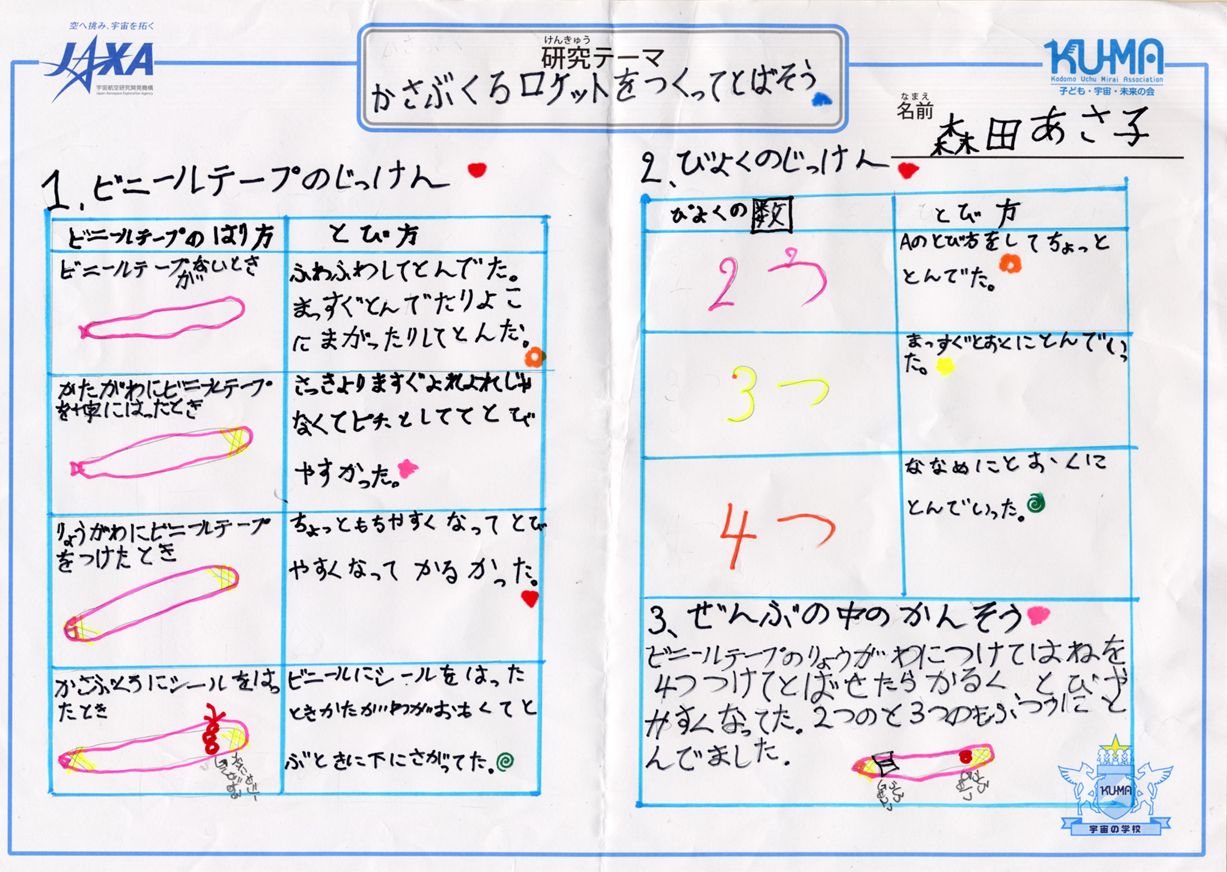 空へ挑み、宇宙を拓く
JAXA
宇宙航空研究開発機構
Japan Aerospace Exploration Agency
けんきゅう
研究テーマ
かさぶくろロケットをつくってとばそう
KU-MA
Kodomo Uchu Mirai Association
子ども・宇宙・未来の会
なまえ
名前
森田あさ子
1、ビニールテープのじっけん
ビニールテープのはり方
とび方
ビニールテープがないとき
ふわふわしてとんでた。
まっすぐとんでたりよこ
にまがったりしてとんだ。
かたがわにビニールテープ
はったとき
さっきよりますぐよれよれじゃ
なくてピチっとしててとび
やすかった。
りょうがわにビニールテープ
をつけたとき
ちょっともちやすくなってとび
やすくなってかるかった。
かさぶくろにシールをはっ
たとき
ビニールにシールをはった
ときかたがわがおもくてと
ぶときに下にさがってた。
2、びよくのじっけん
びよくの数
とび方
2つ
Aのとび方をしてちょっと
とんでた。
3つ
まっすぐとおくにとんでいっ
た。
4つ
ななめにとおくに
とんでいった。
3、ぜんぶの中のかんそう
ビニールテープのりょうがわにつけてはねを
4つつけてとばせたらかるくとびや
やすくなってた。2つのと3つのもふつうにと
んでました。
KU-MA
宇宙の学校